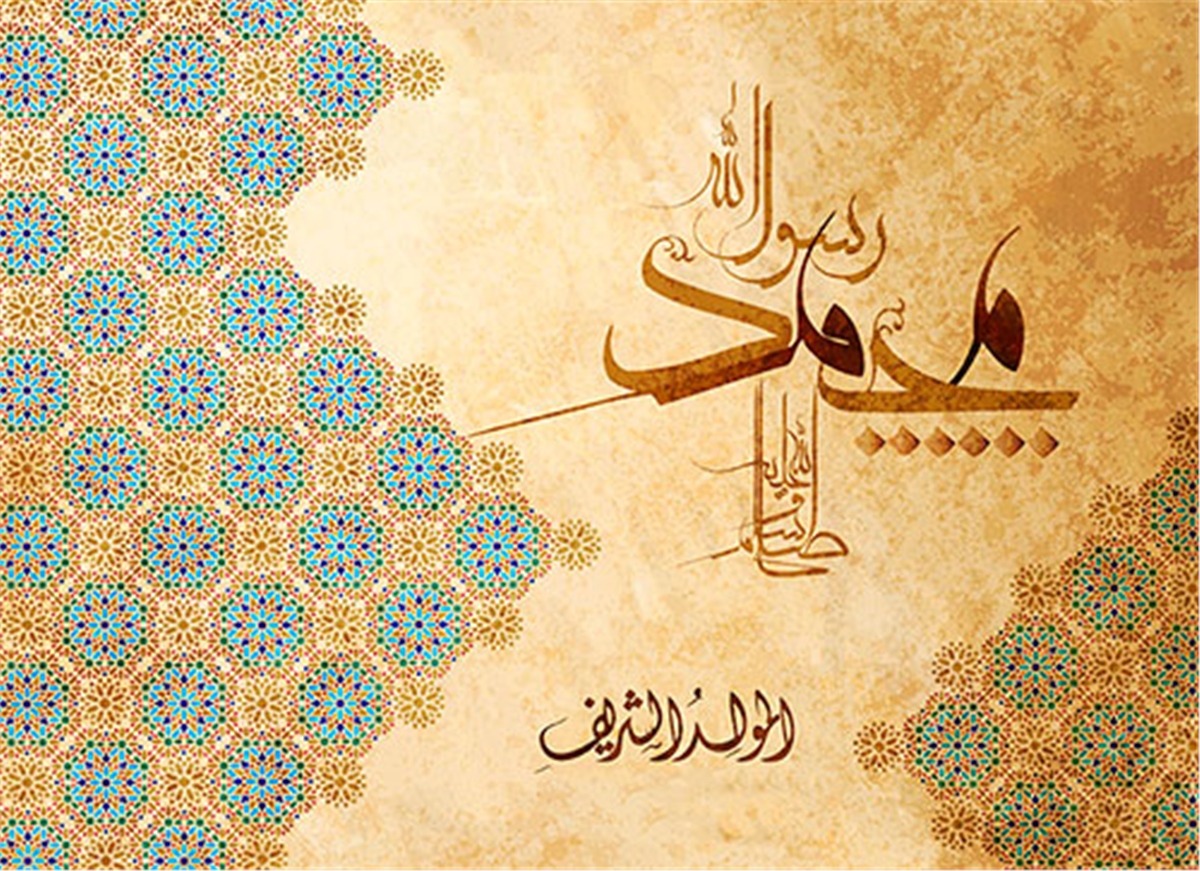 رسول الله
محمد
صلى الله عليه وسلم
المولدُ الشريفِ